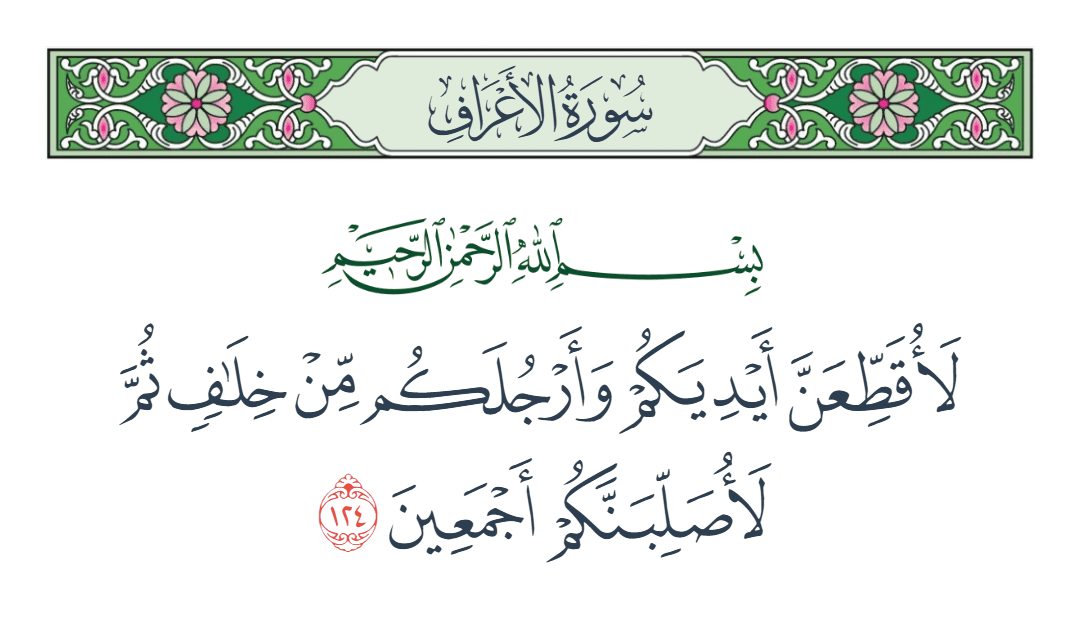 سُورَةُ الأَعْرَافِ
بِسْمِ ٱللَّهِ ٱلرَّحْمَٰنِ ٱلرَّحِيمِ
لَأُقَطِّعَنَّ أَيْدِيَكُمْ وَأَرْجُلَكُم مِّنْ خِلَٰفٍ ثُمَّ
لَأُصَلِّبَنَّكُمْ أَجْمَعِينَ ١٢٤